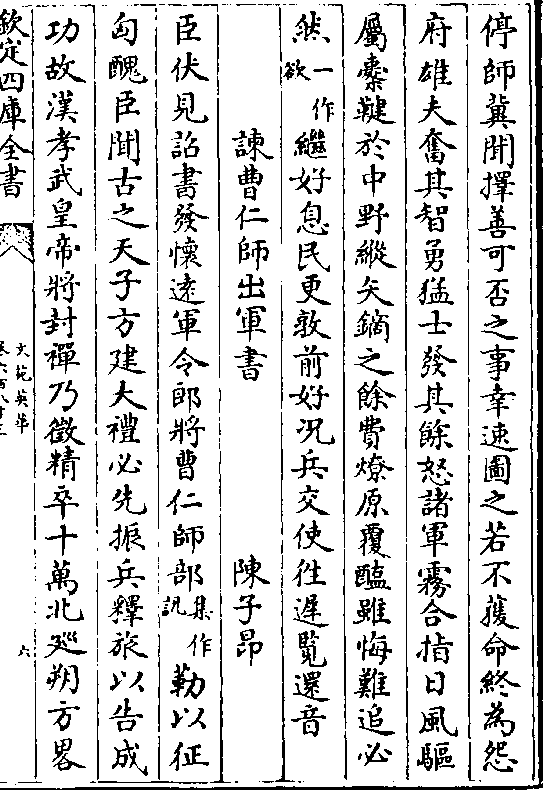 停師冀聞擇善可否之事幸速圖之若不獲命終為怨
府雄夫奮其智勇猛士發其餘怒諸軍霧合指日風驅
屬櫜鞬於中野縱矢鏑之餘費燎原覆醢雖悔難追必
然一作欲繼好息民更敦前好况兵交使徃遲覽還音
諫曹仁師出軍書 陳子昂
臣伏見詔書發懷遠軍令郎將曹仁師部集作訊勒以征
匈醜臣聞古之天子方建大禮必先振兵釋旅以告成
功故漢孝武皇帝將封禪乃徵精卒十萬北廵朔方畧
欽定四庫全書
文苑英華
卷六百八十三
六